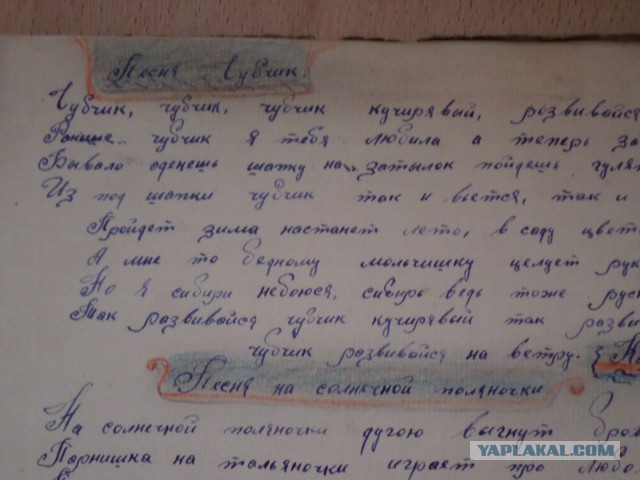 Песня Чубчик.
Чубчик, чубчик, чубчик кучирявый, розвивайся
Раньше чубчик я тебя любила а теперь за
Бывало оденешь шапку на затылок пойдешь гулят
Из под шапки чубчик так и вьется, так и
Пройдет зима настанет лето, в саду цвет
А мне то бедному мольчишку целует рук
Но я сибири небоюся, сибирь ведь тоже рус
Так развивайся чубчик кучирявый так разви
чубчик развивайся на ветру.
Песня на солнечной поляночки
На солнечной поляночки дугою выгнут бров
Парнишка на тальяночки играет про любо
YAPLAKAL.COM